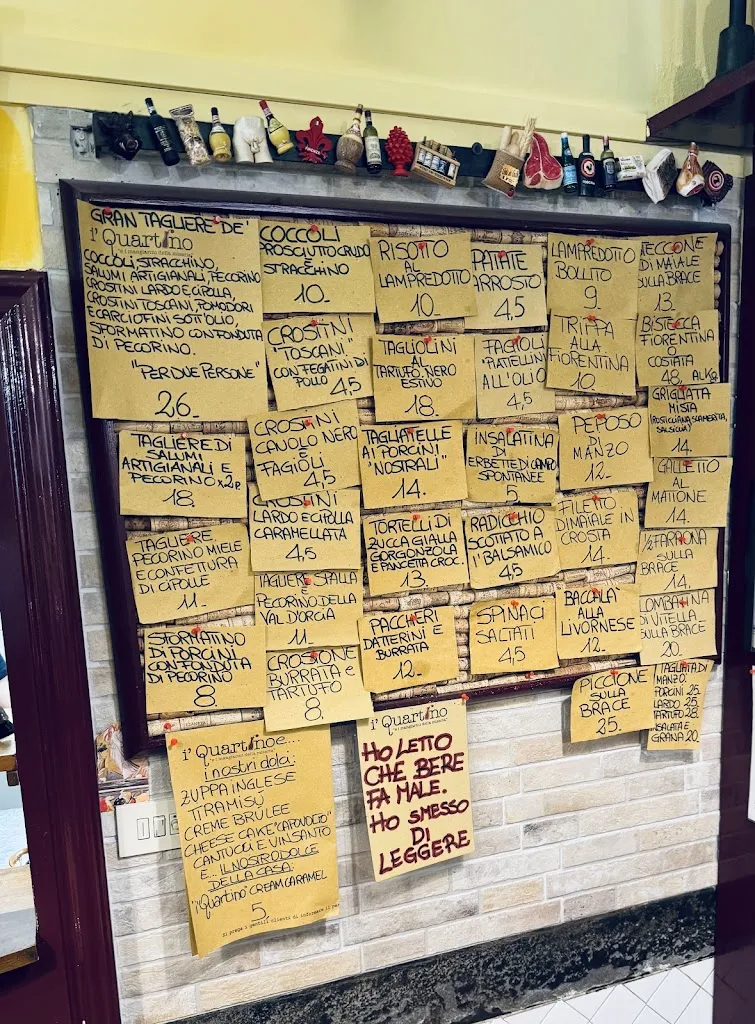 GRAN TAGLIERE DE'
i' Quartino
COCCOLI, STRACCHINO,
SALUMI ARTIGIANALI, PECORINO
CROSTINI LARDO E CIPOLLA,
CROSTINI TOSCANI, POMODORI
E CARCIOFINI SOTT'OLIO,
SFORMATINO CON FONDUTA
DI PECORINO.
"PER DUE PERSONE"
26.
TAGLIERE DI
SALUMI
ARTIGIANALI E
PECORINO x 2 P.
18.
TAGLIERE
PECORINO MIELE
E CONFETTURA
DI CIPOLLE
11.
SFORMATINO
DI PORCINI
CON FONDUTA
DI PECORINO
8
COCCOLI
PROSCIUTTO CRUDO
STRACCHINO
10.
CROSTINI
"TOSCANI"
CON FEGATINI DI
POLLO 4,5
CROSTINI
CAVOLO NERO
E
FAGIOLI
4,5
CROSTINI
LARDO E CIPOLLA
CARAMELLATA
4,5
TAGLIERE SPALLA
E
PECORINO DELLA
VAL D'ORCIA
11.
CROSTONE
BURRATA E
TARTUFO
8.
RISOTTO
AL
LAMPREDOTTO
10.
TAGLIOLINI
AL
TARTUFO NERO
ESTIVO
18.
TAGLIATELLE
AI PORCINI
"NOSTRALI"
14.
TORTELLI DI
ZUCCA GIALLA
GORGONZOLA
E PANCETTA CROC.
13
PACCHERI
DATTERINI E
BURRATA
12.
PATATE
ARROSTO
4,5
FAGIOLI
"PIATTELLINI"
ALL'OLIO
4,5
INSALATINA
DI
ERBETTE DI CAMPO
SPONTANEE
5
RADICCHIO
SCOTTATO A
L'BALSAMICO
4,5
SPINACI
SALTATI
4,5
LAMPREDOTTO
BOLLITO
9
TRIPPA
ALLA
FIORENTINA
10.
PEPOSO
DI
MANZO
12.
FILETTO
DI MAIALE IN
CROSTA
14.
BACCALÀ
ALLA
LIVORNESE
12.
PICCIONE
SULLA
BRACE
25.
SECCIONE
DI MAIALE
SULLA BRACE
13.
BISTECCA
FIORENTINA
O
COSTATA
48, AL KG
GRIGLIATA
MISTA
(ROSTICCIANA, SCAMERITA,
SALSICCIA)
14.
GALLETTO
AL
MATTONE
14.
1/2 FARAONA
SULLA
BRACE
14.
LOMBATINA
DI VITELLA
SULLA BRACE
20.
TAGLIATA DI
MANZO:
PORCINI 25.
LARDO 25.
TARTUFO 28.
INSALATA E
GRANA 20.
i' Quartino e...
i nostri dolci:
ZUPPA INGLESE
TIRAMISÙ
CREME BRÛLEE
CHEESE CAKE "CAPOVOLTO"
CANTUCCI E VINSANTO
E... IL NOSTRO DOLCE
DELLA CASA:
"i'Quartino" CREAM CARAMEL
5.
Si prega i gentili clienti di informare il per
i' Quartino
HO LETTO
CHE BERE
FA MALE.
HO SMESSO
DI
LEGGERE